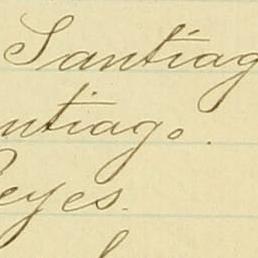 Santiag
ntiago.
eyes.